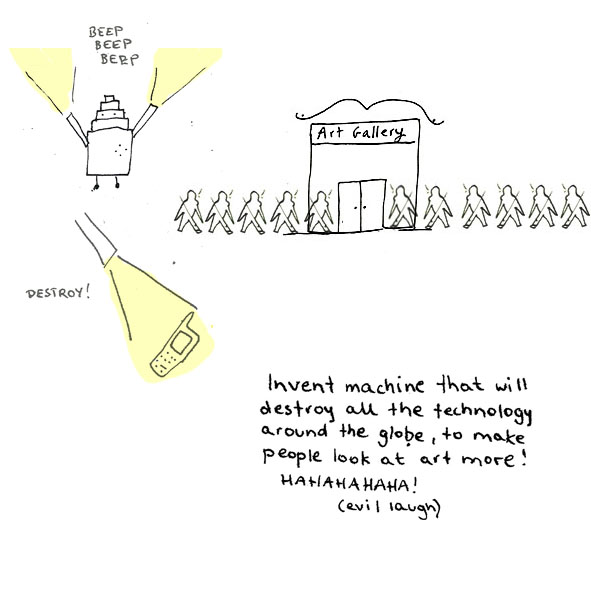 BEEP
BEEP
BEEP
Art Gallery
DESTROY!
Invent machine that will
destroy all the technology
around the globe, to make
people look at art more!
HAHAHAHAHA!
(evil laugh)